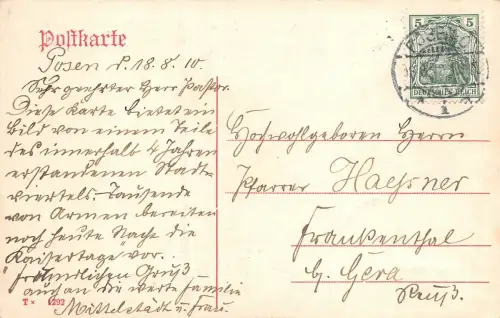 Postkarte
Posen d. 18.8.10.
Sehr geehrter Herr Pastor.
Diese Karte bietet ein
Bild von einem Teile
des innerhalb 4 Jahren
erstandenen Stadt-
viertels. Tausende
von Armen bereiten
noch heute Nacht die
Kaisertage vor.
Freundlichen Gruß
auch an die werte Familie
Mittelstädt u. Frau.
T × 1292
5 5
DEUTSCHES REICH
POSEN
1
Hochwohlgeboren Herrn
Pfarrer
Frankenthal
b. Gera
Reuß.